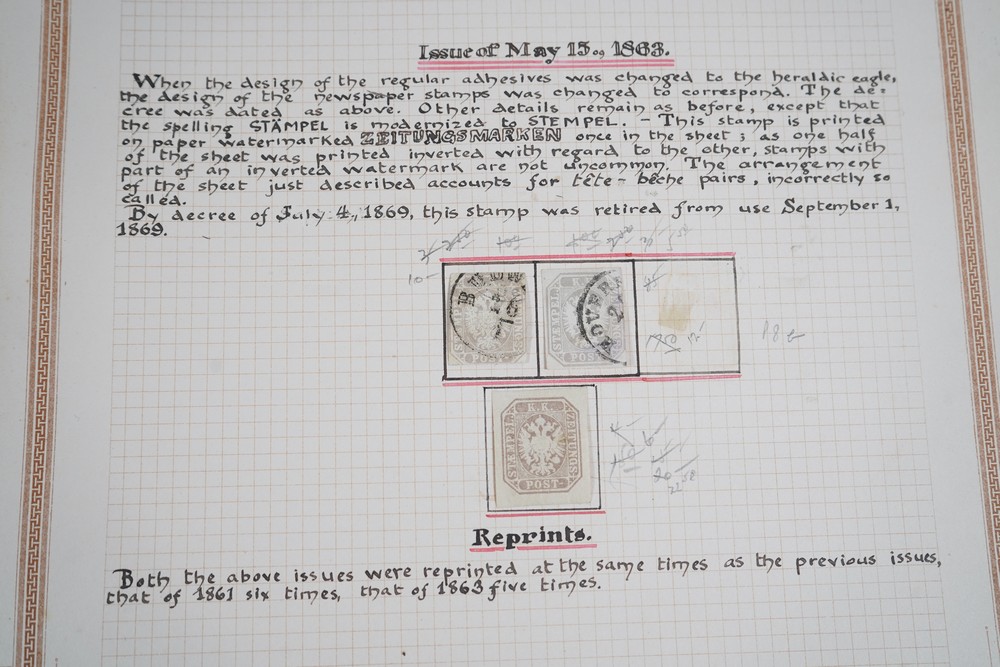 Issue of May 15., 1863.
When the design of the regular adhesives was changed to the heraldic eagle,
the design of the newspaper stamps was changed to correspond. The de=
cree was dated as above. Other details remain as before, except that
the spelling STÄMPEL is modernized to STEMPEL. - This stamp is printed
on paper watermarked ZEITUNGSMARKEN once in the sheet; as one half
of the sheet was printed inverted with regard to the other, stamps with
part of an inverted watermark are not uncommon. The arrangement
of the sheet just described accounts for tête-bêche pairs, incorrectly so
called.
By decree of July 4., 1869, this stamp was retired from use September 1,
1869.
10-
STEMPEL
POST
STEMPEL
POST
K.K.
STEMPEL
ZEITUNGS
POST
Reprints.
Both the above issues were reprinted at the same times as the previous issues,
that of 1861 six times, that of 1863 five times.